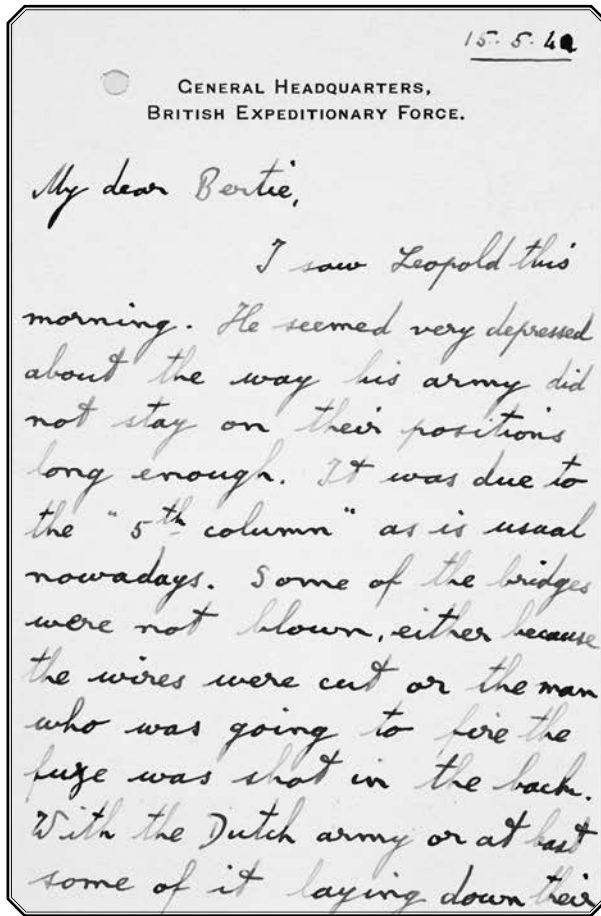 15.5.40
GENERAL HEADQUARTERS,
BRITISH EXPEDITIONARY FORCE.
My dear Bertie,
I saw Leopold this
morning. He seemed very depressed
about the way his army did
not stay on their positions
long enough. It was due to
the "5th column" as is usual
nowadays. Some of the bridges
were not blown, either because
the wires were cut or the man
who was going to fire the
fuze was shot in the back.
With the Dutch army or at least
some of it laying down their